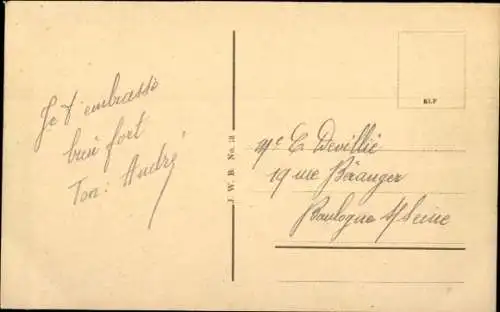 Je t'embrasse
bien fort
Ton : André
J. W. B. No. 18
KLP
Me E Deville
19 rue Béranger
Boulogne s/ Seine